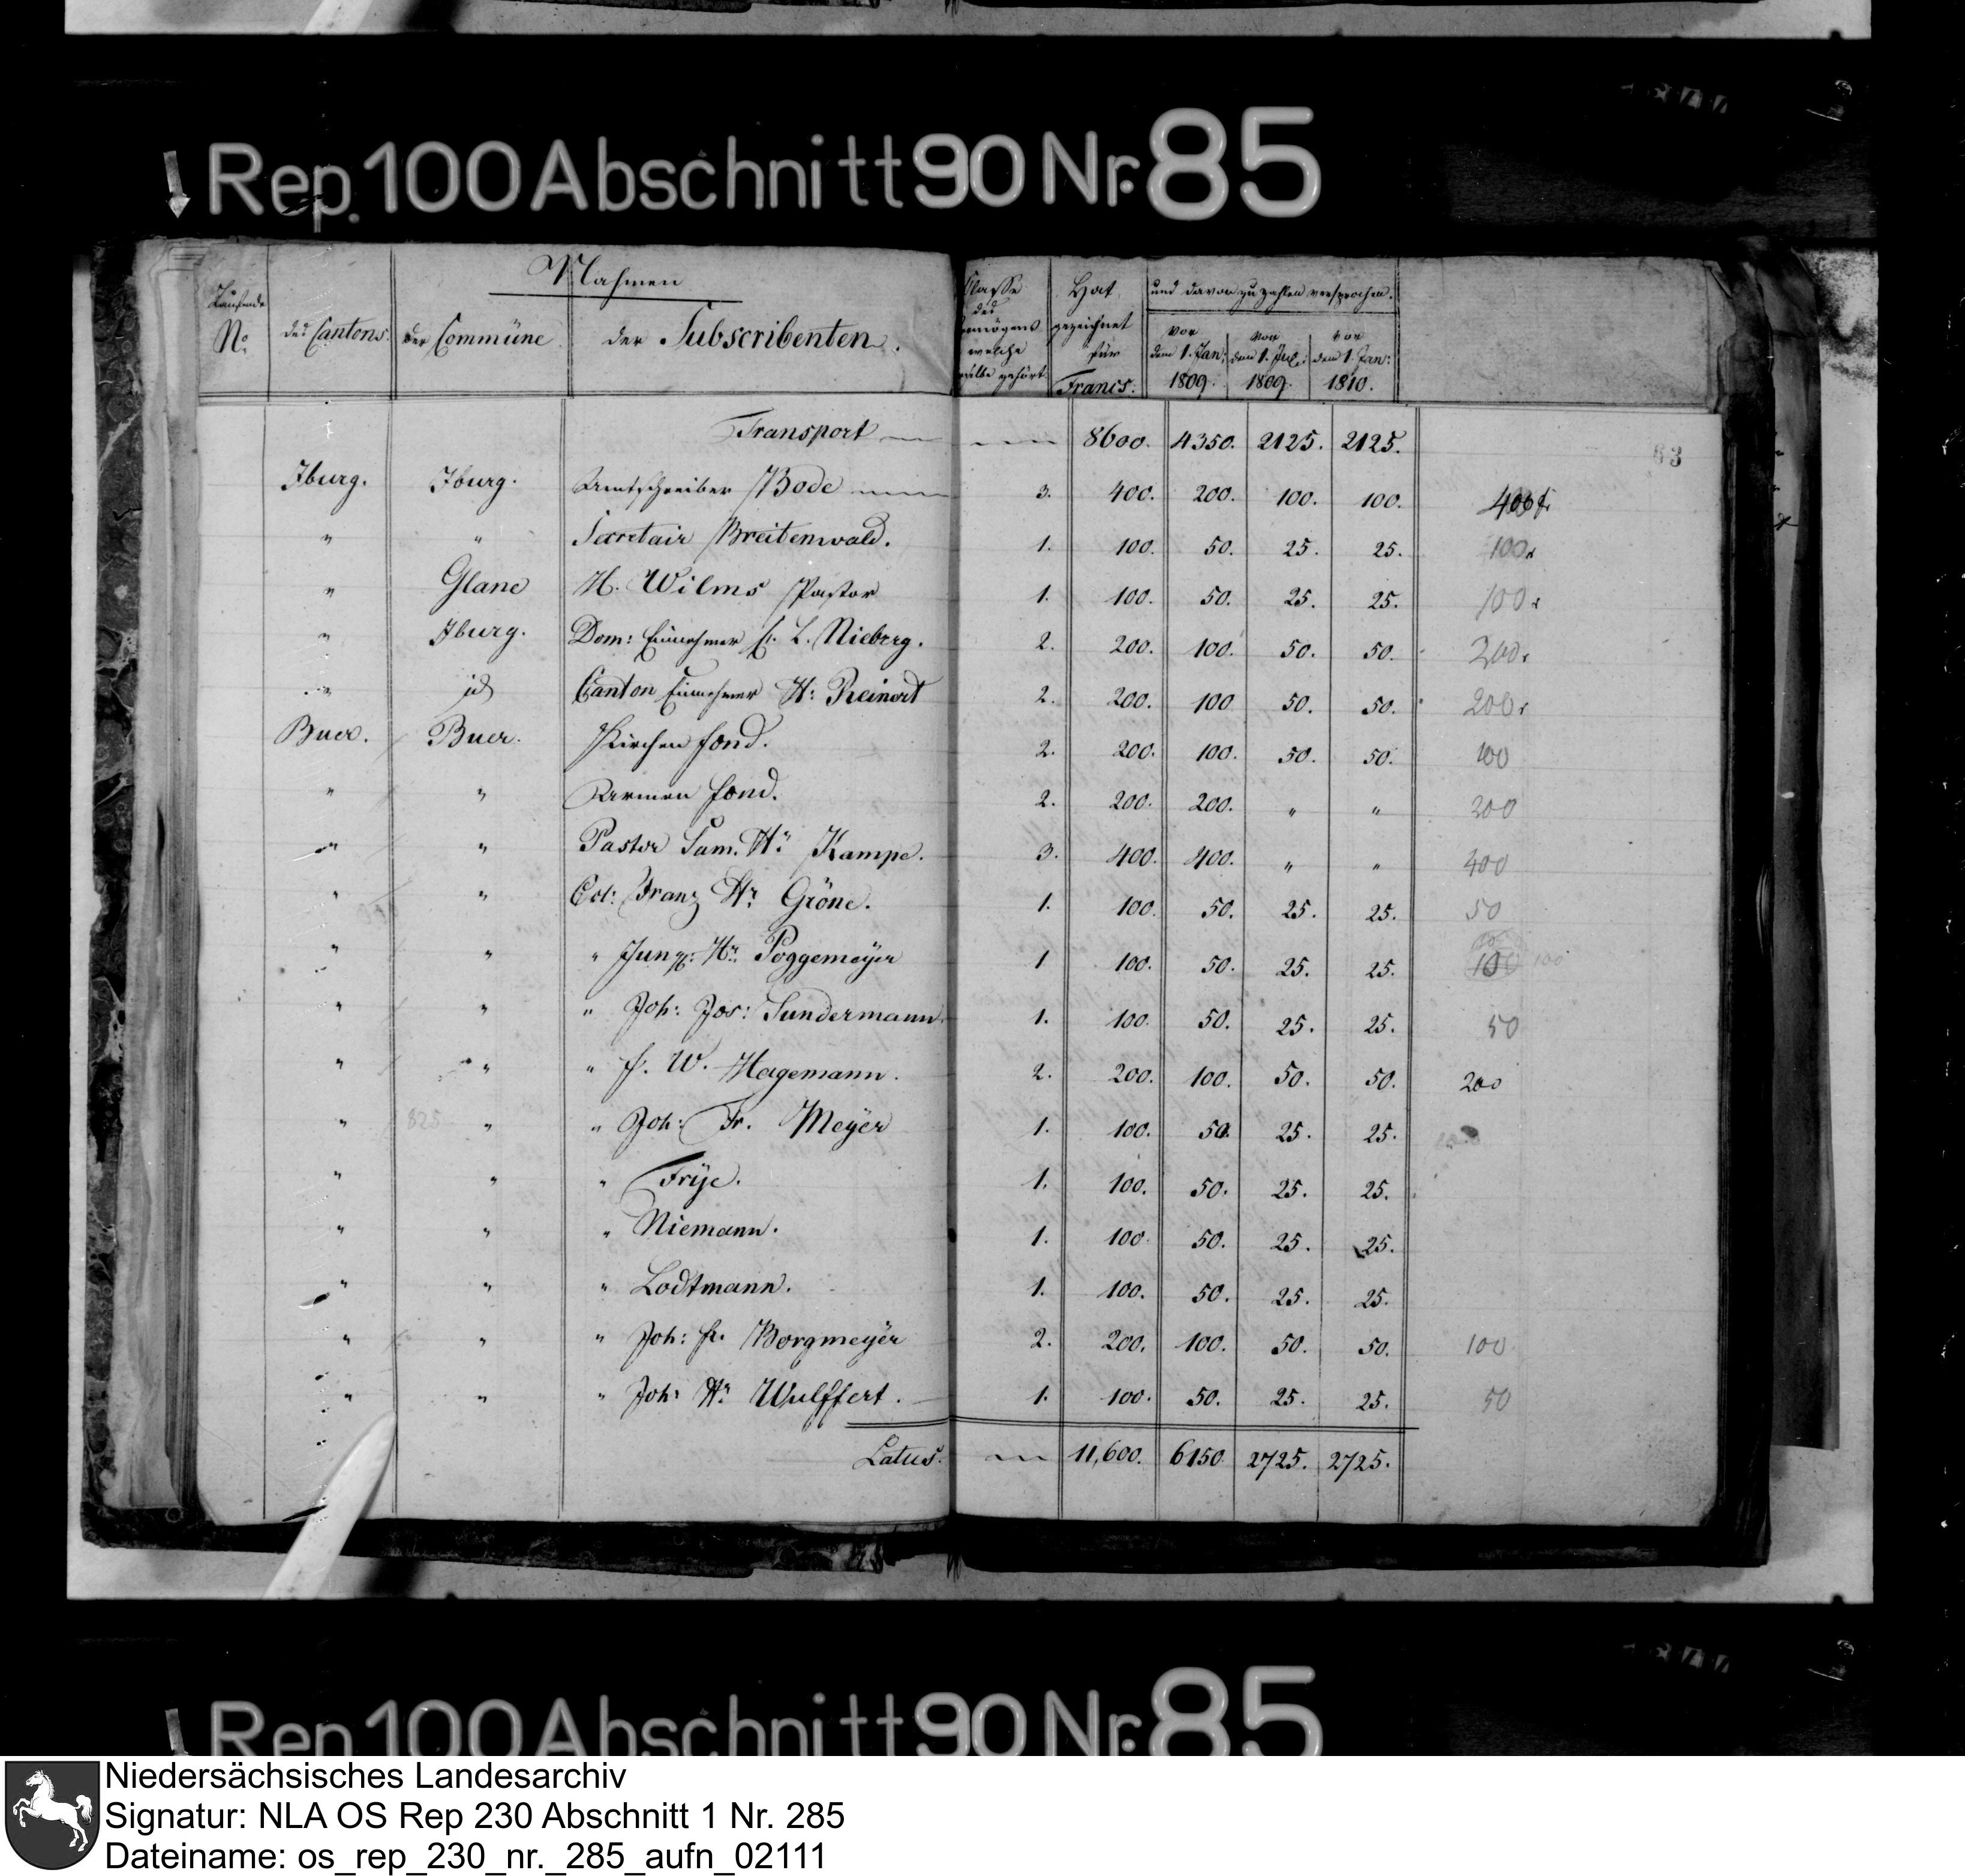 Rep. 100 Abschnitt 90 Nr. 85
Nahmen
Laufende No. des Cantons. der Commüne. der Subscribenten.
Classe des welche gehört
Hat gezeichnet für Francs.
und davon zu zahlen versprochen.
vor dem 1. Jan: 1809. vor dem 1. Jul: 1809. vor dem 1. Jan: 1810.
Transport 8600. 4350. 2125. 2125.
63
Iburg. Iburg. Amtschreiber Bode 3. 400. 200. 100. 100. 400 f.
" " Secretair Breitenwald. 1. 100. 50. 25. 25. 100
" Glane H. Wilms Pastor 1. 100. 50. 25. 25. 100
" Iburg. Dom: Einnehmer F. L. Nieberg. 2. 200. 100. 50. 50. 200
" id Canton Einnehmer H: Reinert 2. 200. 100 50. 50. 200
Buer. Buer. Kirchen fond. 2. 200. 100. 50. 50. 100
" " Armen fond. 2. 200. 200. " " 200
" " Pastor Sam. Hr Kampe. 3. 400. 400. " " 400
" " Col: Franz Hr. Gröne. 1. 100. 50. 25. 25. 50
" " " Jung: Hr. Poggemeÿer 1 100. 50. 25. 25. 100 100
" " " Joh: Jos: Sundermann 1. 100. 50. 25. 25. 50
" " " F. W. Hagemann. 2. 200. 100. 50. 50. 200
" 825 " " Joh: Fr. Meÿer 1. 100. 50. 25. 25.
" " " Frije. 1. 100. 50. 25. 25.
" " " Niemann. 1. 100. 50. 25. 25.
" " " Lodtmann. 1. 100. 50. 25. 25.
" " " Joh: Fr. Borgmeÿer 2. 200. 100. 50. 50. 100
" " " Joh: Hr Wulffert. 1. 100. 50. 25. 25. 50
Latus. 11,600. 6150. 2725. 2725.
Rep. 100 Abschnitt 90 Nr. 85
Niedersächsisches Landesarchiv
Signatur: NLA OS Rep 230 Abschnitt 1 Nr. 285
Dateiname: os_rep_230_nr._285_aufn_02111